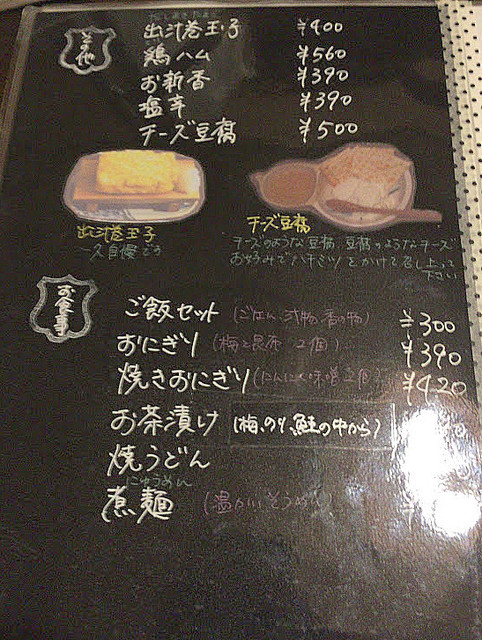 その他
だしまきたまご
出汁巻玉子 ¥400
鶏ハム ¥560
お新香 ¥390
塩辛 ¥390
チーズ豆腐 ¥500
出汁巻玉子
チーズ豆腐
チーズのような豆腐、豆腐のようなチーズ
お好みでハチミツをかけて召し上って
下さい
お食事
ご飯セット (ごはん、汁物、香の物) ¥300
おにぎり (梅と昆布 2個) ¥390
焼きおにぎり (にんにく味噌 2個) ¥420
お茶漬け (梅、のり、鮭の中から)
焼うどん
にゅうめん
煮麺 (温かいそうめん)